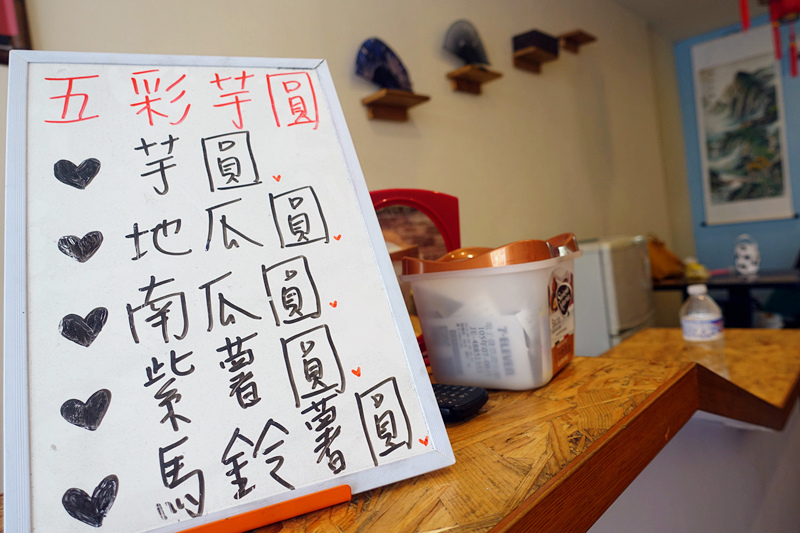 五彩芋圓
芋圓
地瓜圓
南瓜圓
紫薯圓
馬鈴薯圓
7-ELEVEN